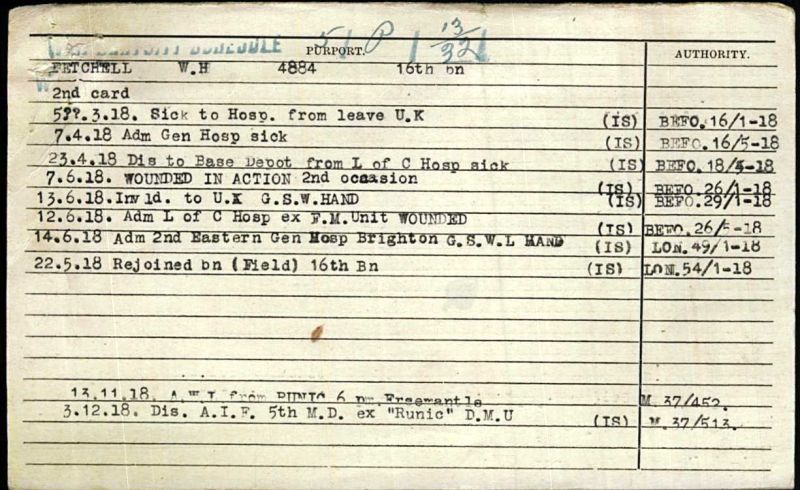 SCHEDULE PURPORT. 5/ P 13/32 AUTHORITY.
FETCHELL W.H 4884 16th bn
2nd card
5??.3.18. Sick to Hosp. from leave U.K (IS) BEFO.16/1-18
7.4.18 Adm Gen Hosp sick (IS) BEFO.16/5-18
23.4.18 Dis to Base Depot from L of C Hosp sick (IS) BEFO.18/5-18
7.6.18. WOUNDED IN ACTION 2nd occasion (IS) BEFO.26/1-18
13.6.18.Invld. to U.K G.S.W.HAND (IS) BEFO.29/1-18
12.6.18. Adm L of C Hosp ex F.M.Unit WOUNDED (IS) BEFO.26/5-18
14.6.18 Adm 2nd Eastern Gen Hosp Brighton G.S.W.L HAND (IS) LON.49/1-18
22.5.18 Rejoined bn (Field) 16th Bn (IS) LON.54/1-18
13.11.18. A.W.L from RUNIC 6 pm Freemantle M.37/452.
3.12.18. Dis. A.I.F. 5th M.D. ex "Runic" D.M.U (IS) M.37/513.